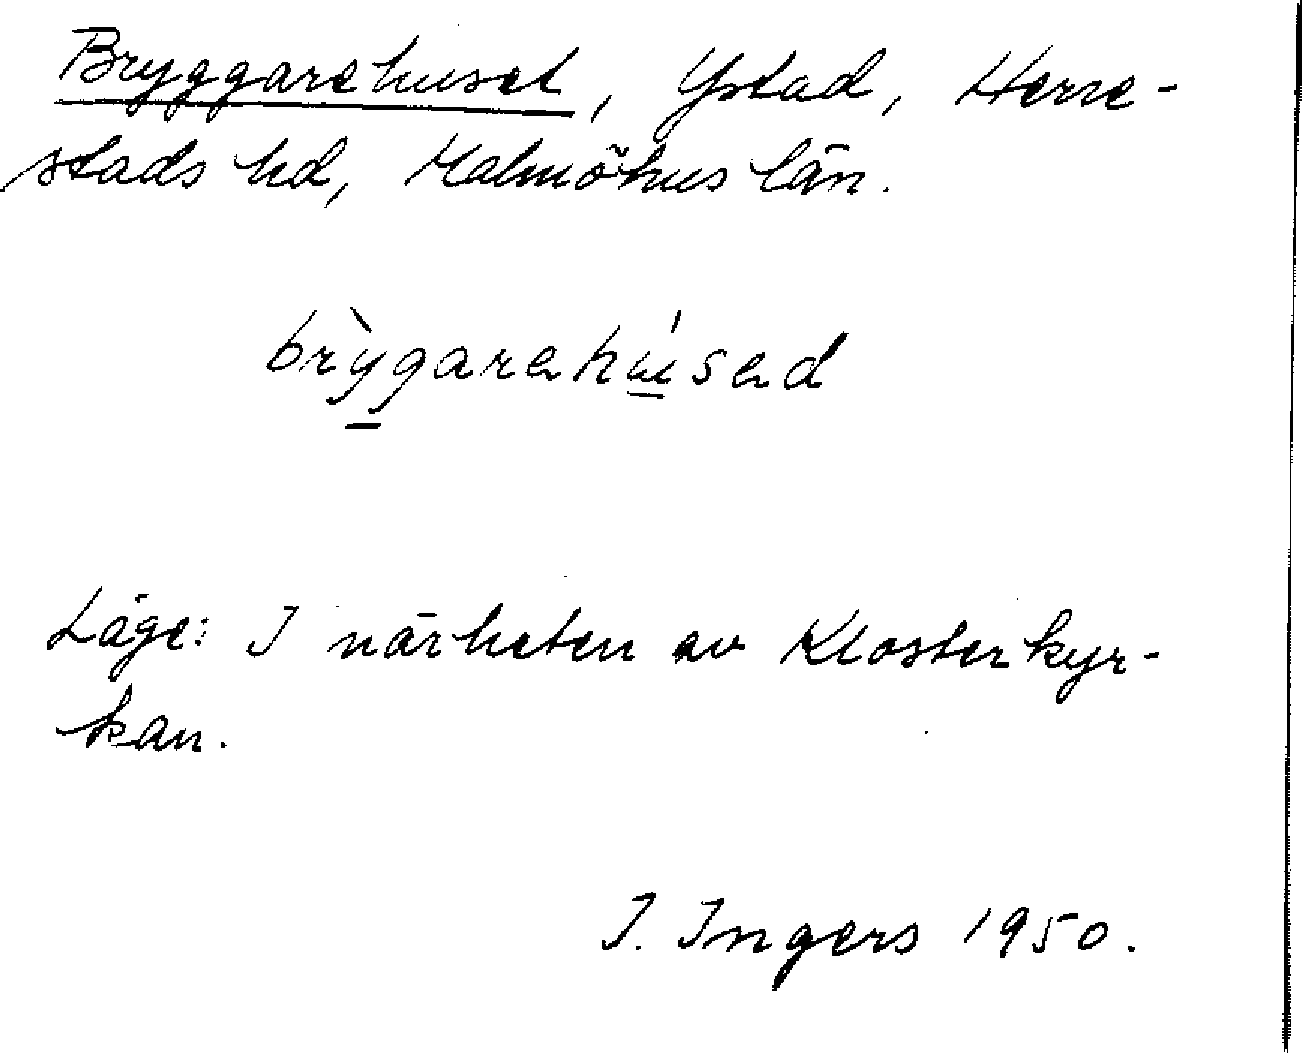 Bryggarehuset, Ystad, Herre-
stads hd, Malmöhus län.
brỳgarehúsed
Läge: I närheten av Klosterkyr-
kan.
I. Ingers 1950.